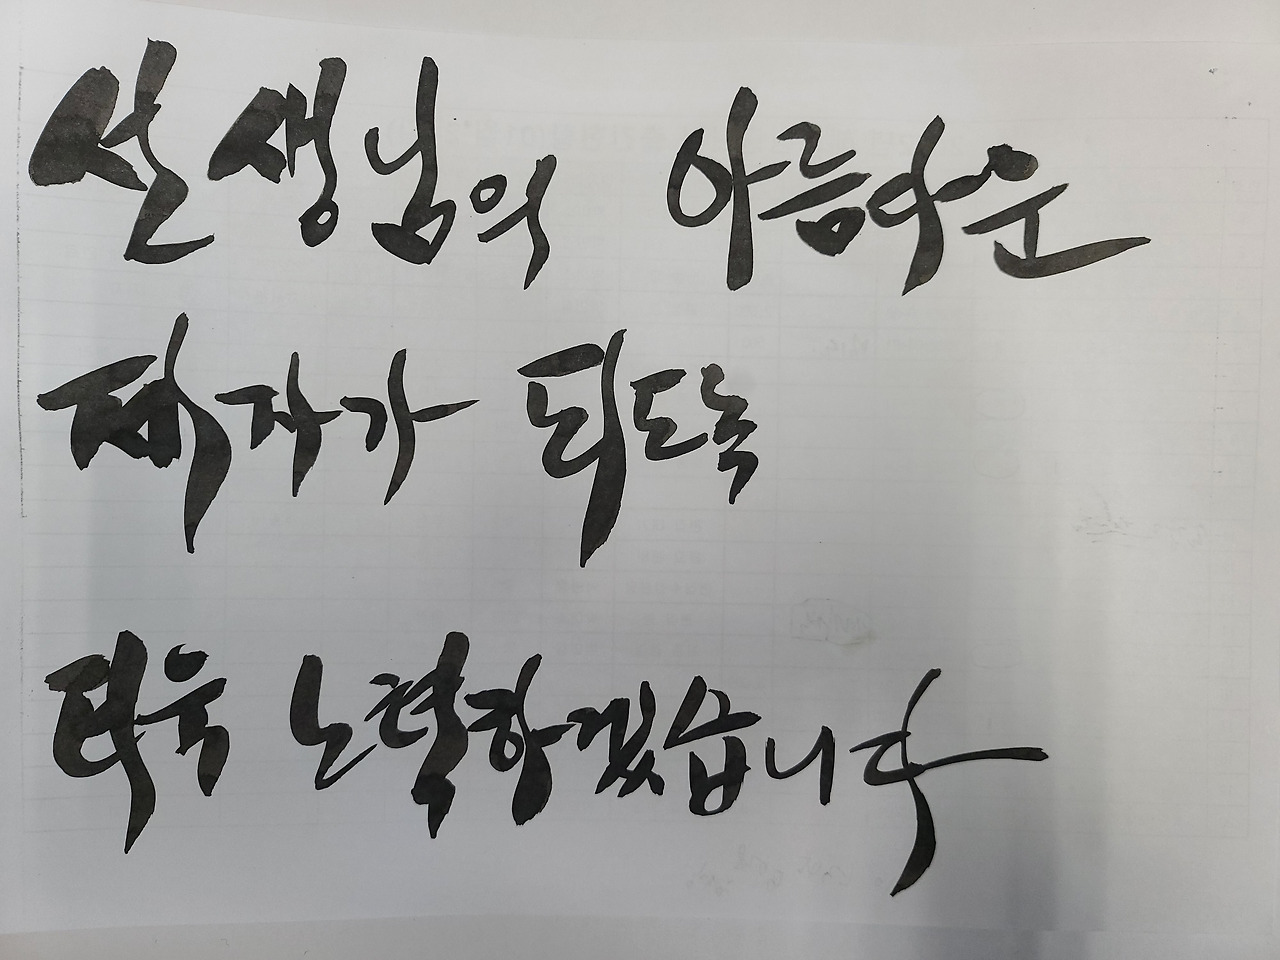 선생님의 아름다운
제자가 되도록
더욱 노력하겠습니다